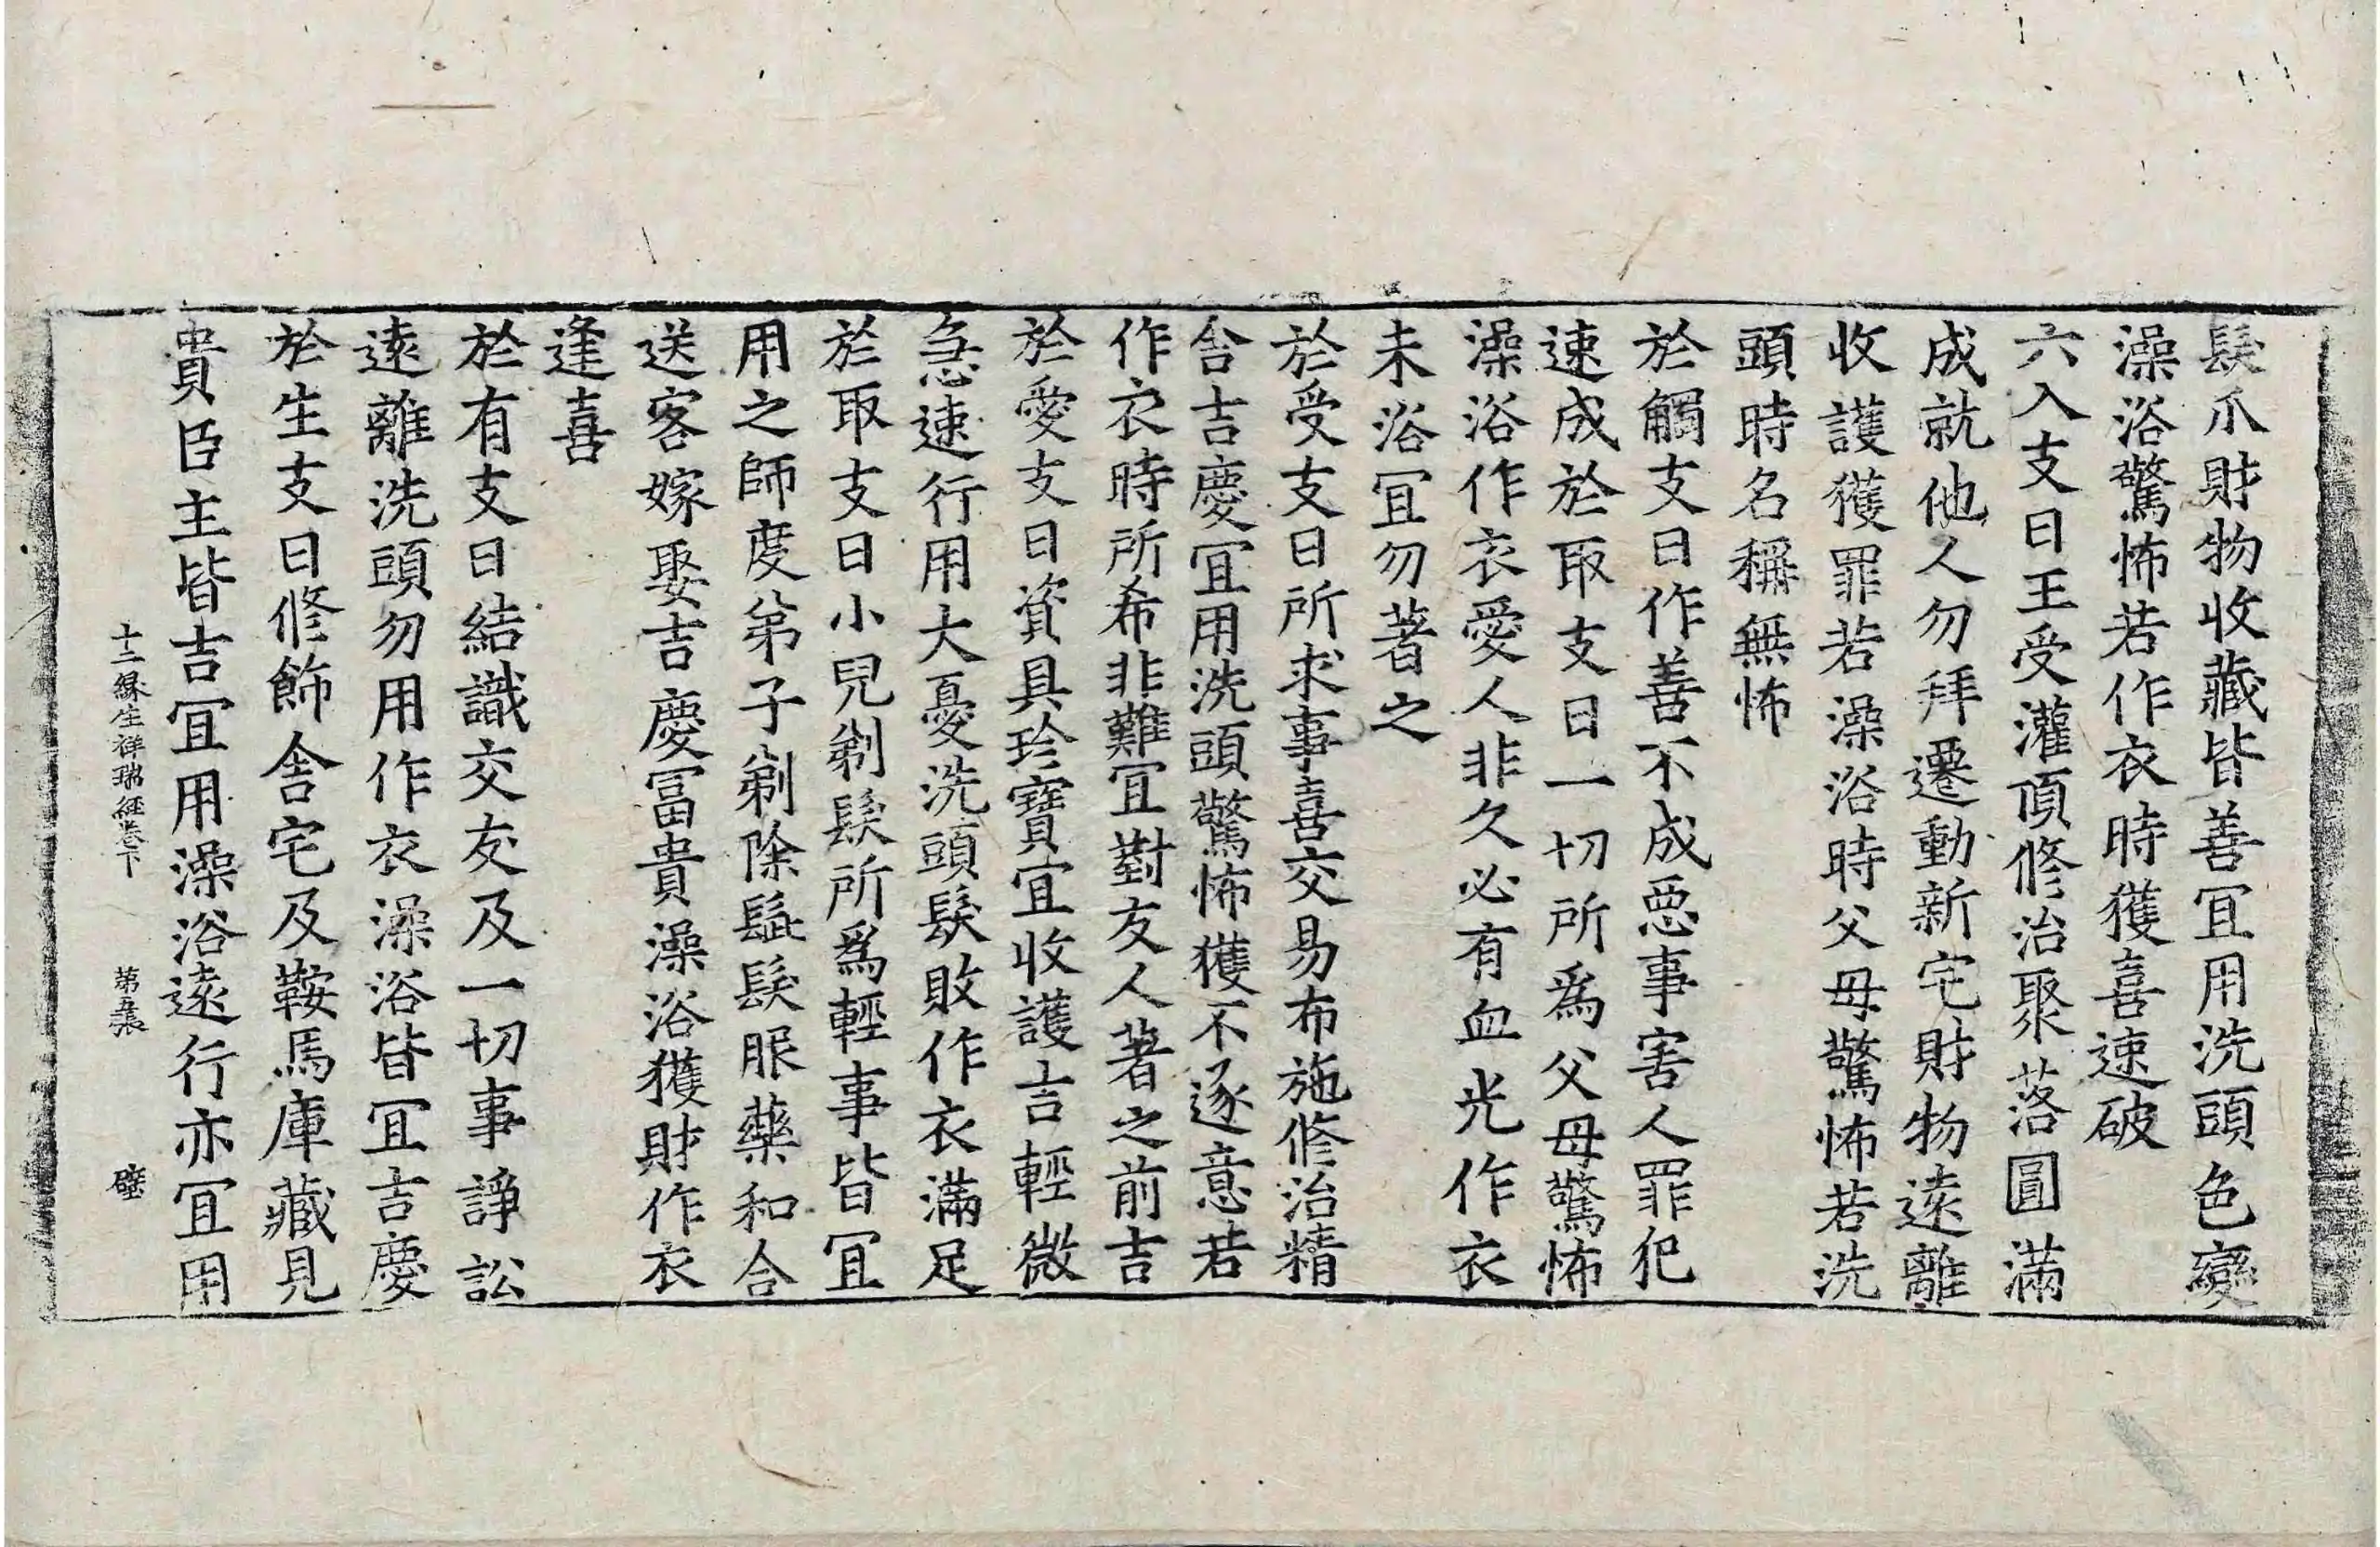 髮爪財物收藏皆善冝用洗頭色變
澡浴驚怖若作衣時獲喜速破
六入支日王受灌頂修治聚落圓滿
成就他人勿拜遷動新宅財物遠離
收護獲罪若澡浴時父母驚怖若洗
頭時名稱無怖
於觸支日作善不成惡事害人罪犯
速成於取支日一切所爲父母驚怖
澡浴作衣愛人非久必有血光作衣
未浴冝勿著之
於受支日所求事喜交易布施修治精
舍吉慶冝用洗頭驚怖獲不逐意若
作衣時所希非難冝對友人著之前吉
於愛支日資具珍寶冝收護言輕微
急速行用大憂洗頭髮敗作衣滿足
於取支日小兒剃髮所爲輕事皆冝
用之師度弟子剃除髭髮服藥和合
送客嫁娶吉慶冨貴澡浴獲財作衣
逢喜
於有支日結識交友及一切事諍訟
遠離洗頭勿用作衣澡浴皆冝吉慶
於生支日修飾舍宅及鞍馬庫藏見
貴臣主皆吉冝用澡浴遠行亦冝用
十二緣生祥瑞經卷下 第五張 璧